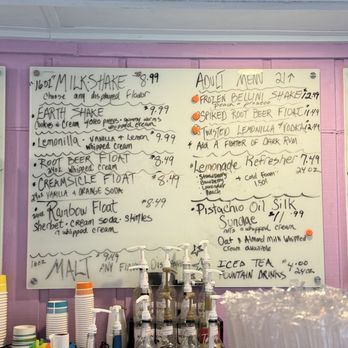 16oz MILKSHAKE $8.99
choose any displayed flavor
EARTH SHAKE $9.99
Cookies & Cream
whipped cream
Lemonilla - Vanilla + Lemon $9.99
whipped cream
ROOT BEER FLOAT $8.49
24oz whipped cream
CREAMSICLE FLOAT $8.49
24oz VANILLA & ORANGE SODA
Rainbow Float $8.49
Sherbet - cream soda - sprinkles
+ whipped cream
16oz MALT $9.49
ADULT MENU 21↑
FROZEN BELLINI SHAKE $12.49
peach + prosecco
SPIKED ROOT BEER FLOAT
TWISTED LEMONILLA + VODKA
+ ADD A FLOATER OF DARK RUM
Lemonade Refresher $7.49
Strawberry 24oz
Raspberry + cold foam
Lavender 1.50
Peach
Pistachio Oil Silk
Sundae $11.99
nuts & whipped cream
Oat & Almond Milk whipped
cream available
ICED TEA $4.00
FOUNTAIN DRINKS 24oz